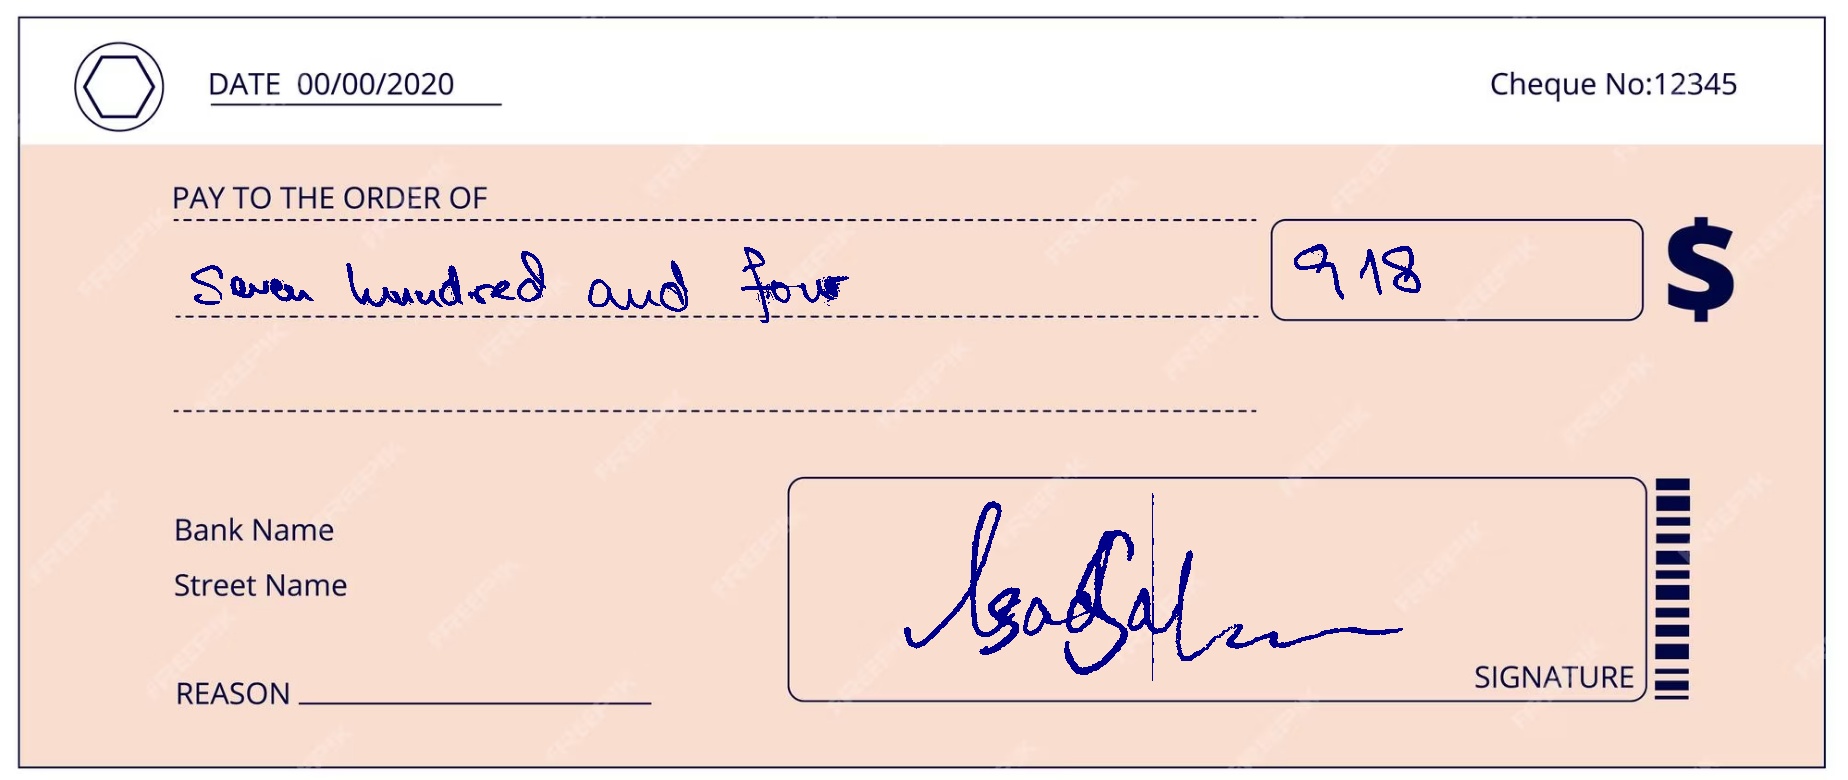 DATE 00/00/2020
Cheque No:12345
PAY TO THE ORDER OF
Seven hundred and four
918
$
Bank Name
Street Name
REASON
SIGNATURE